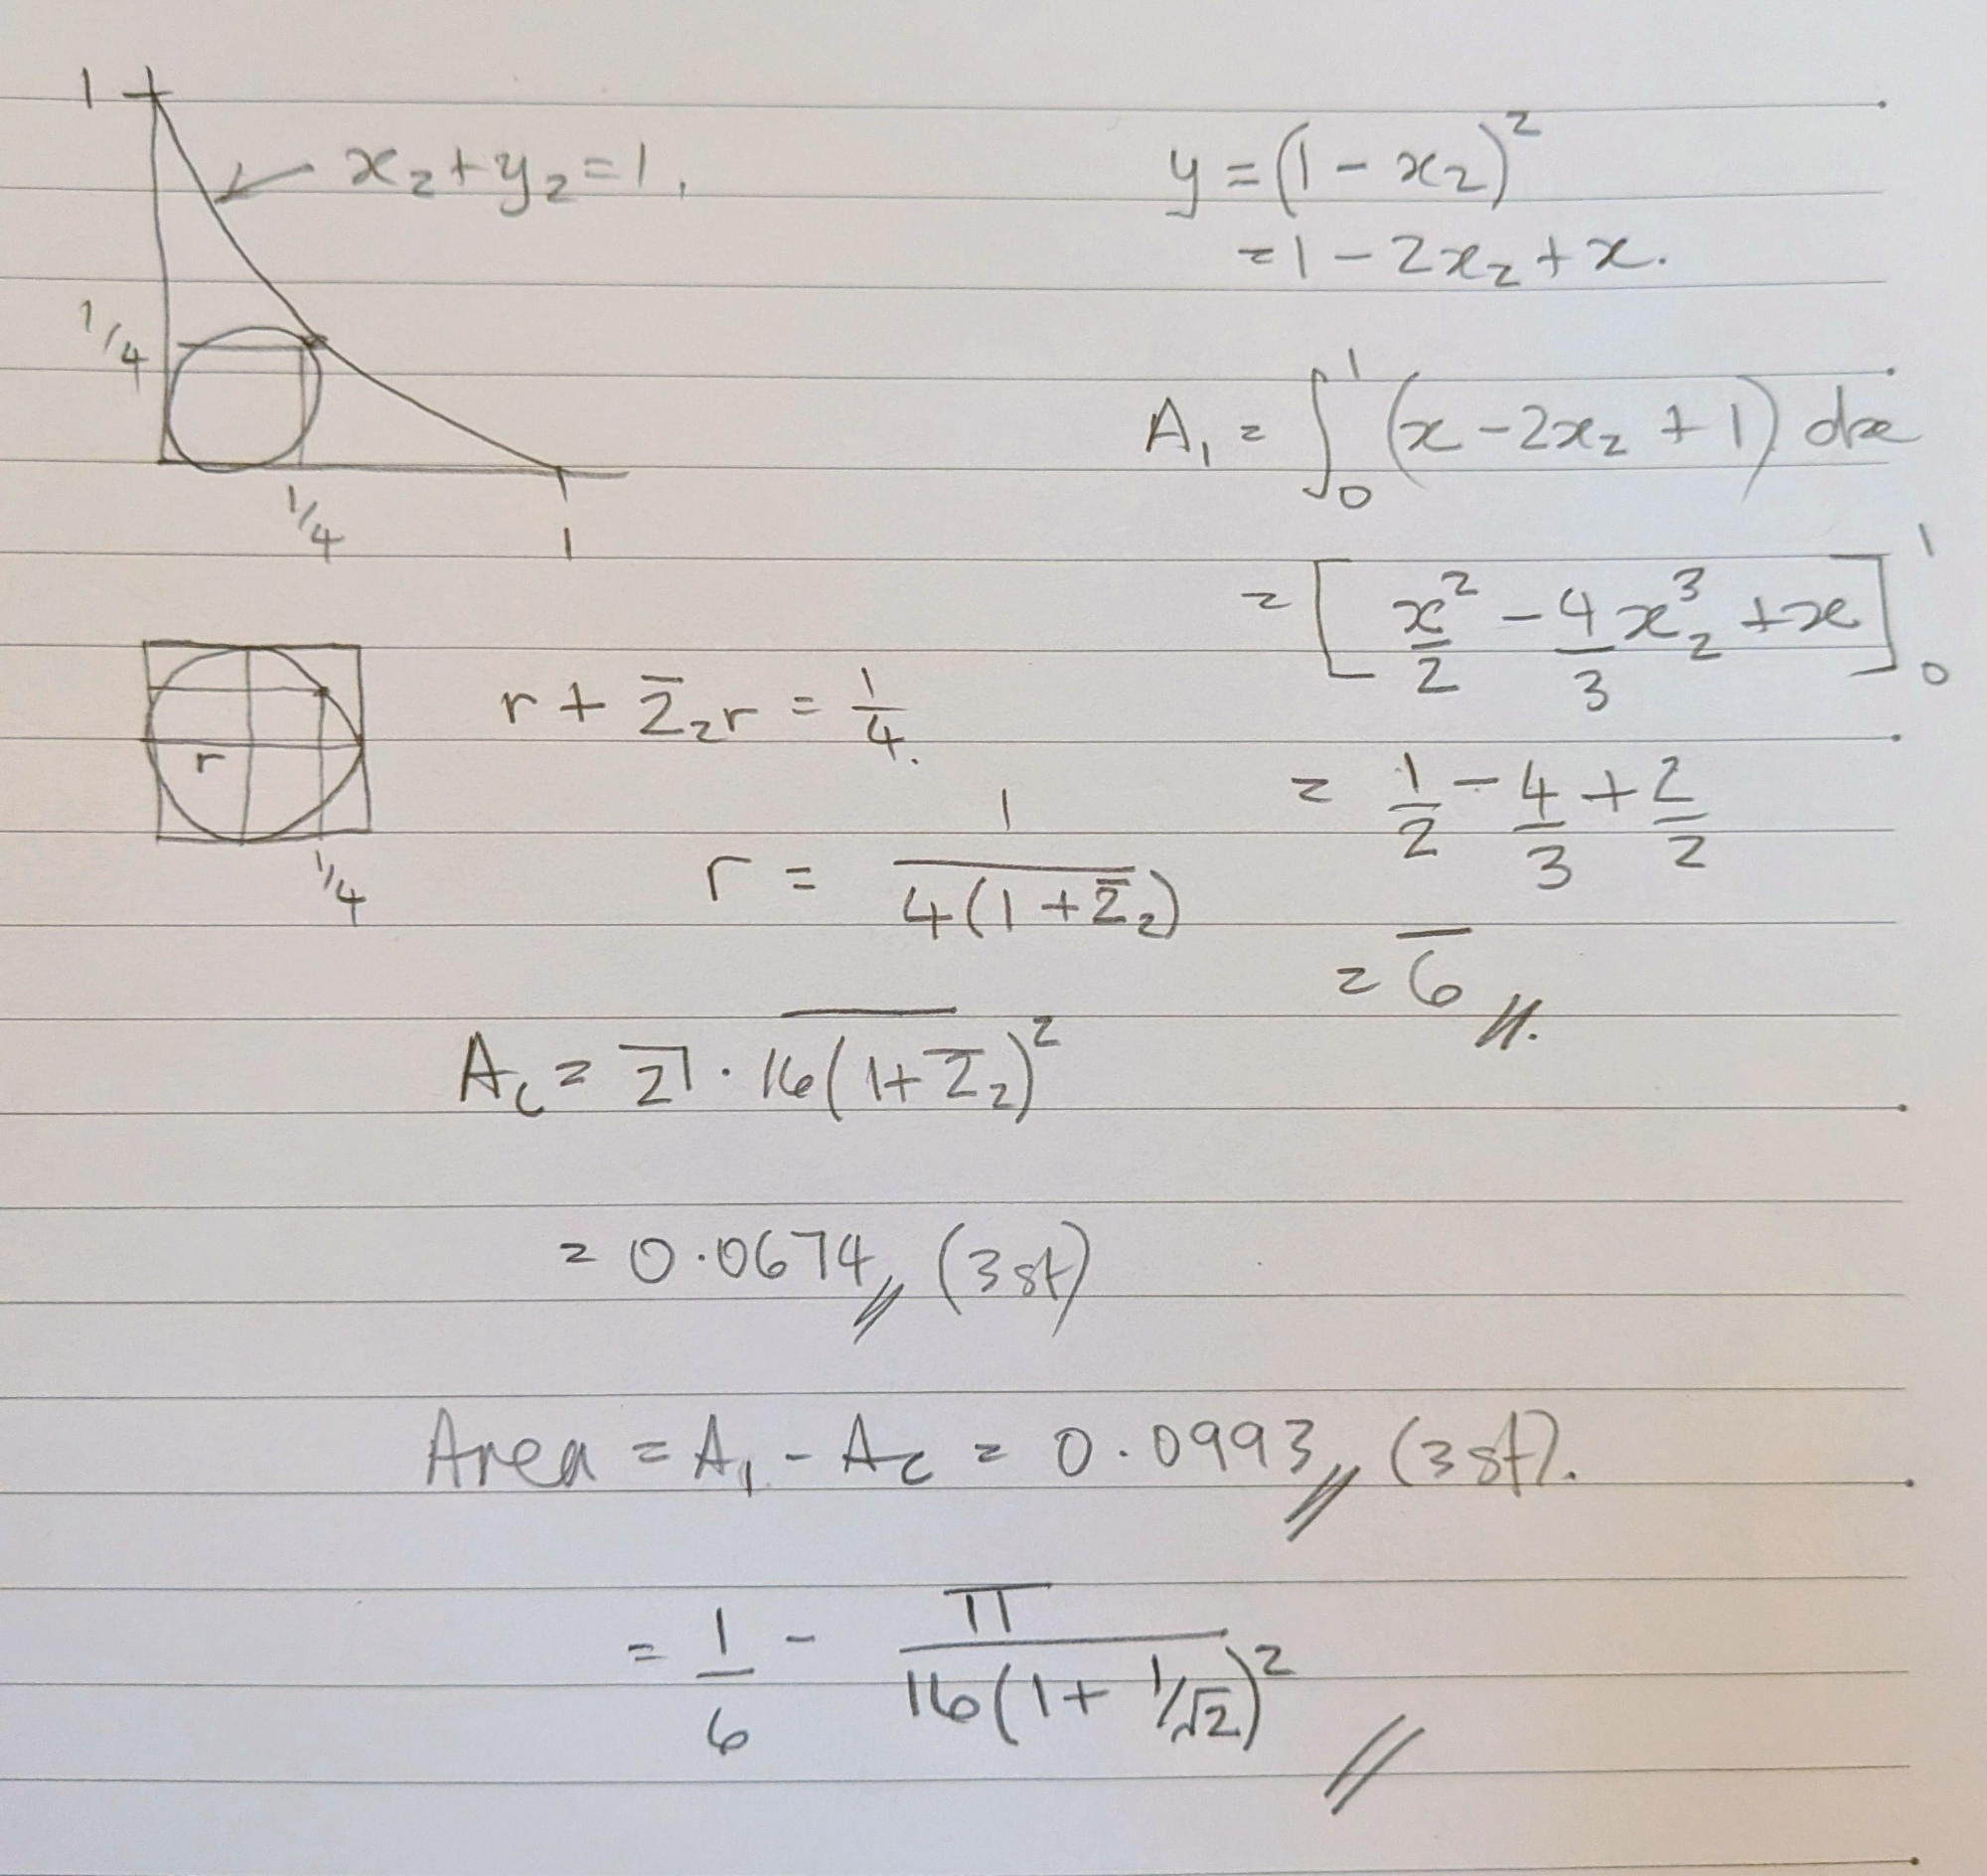 1
x₂ + y₂ = 1,
1/4
1/4
1
y = (1 - x₂)²
= 1 - 2x₂ + x.
A₁ = ∫₀¹ (x - 2x₂ + 1) dx
= [x²/2 - 4/3 x³₂ + x]₀¹
= 1/2 - 4/3 + 2/2
= 6̅ //.
r
1/4
r + 2̅₂r = 1/4.
r = 1/(4(1 + 2̅₂))
A_c = 2̅1̅ · 1̅6̅(̅1̅+̅ 2̅₂)²
= 0.0674 // (3sf)
Area = A₁ - A_c = 0.0993 // (3sf).
= 1/6 - π/(16(1 + 1/√2)²) //